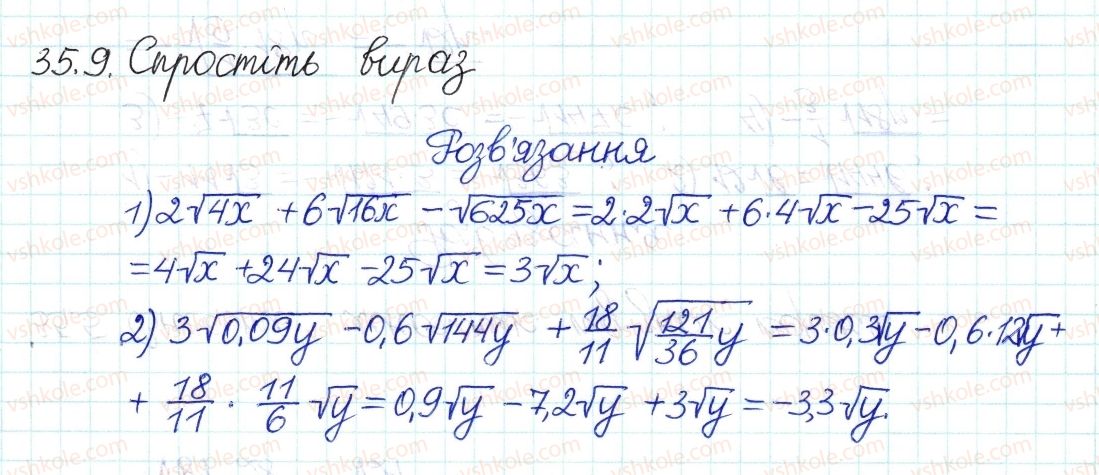 35.9. Спростіть вираз
Розв'язання
1) 2√4x + 6√16x - √625x = 2·2√x + 6·4√x - 25√x =
= 4√x + 24√x - 25√x = 3√x;
2) 3√0,09y - 0,6√144y + 18/11 √(121/36 y) = 3·0,3√y - 0,6·12√y +
+ 18/11 · 11/6 √y = 0,9√y - 7,2√y + 3√y = -3,3√y.